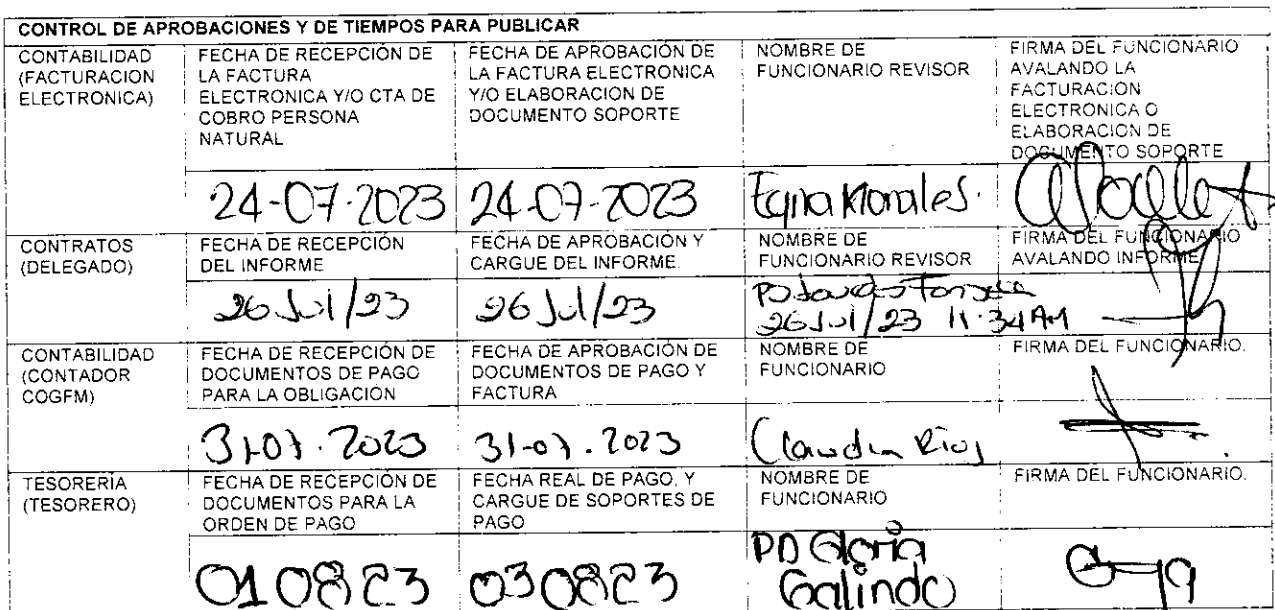 CONTROL DE APROBACIONES Y DE TIEMPOS PARA PUBLICAR
CONTABILIDAD
(FACTURACION
ELECTRONICA)
FECHA DE RECEPCIÓN DE
LA FACTURA
ELECTRONICA Y/O CTA DE
COBRO PERSONA
NATURAL
FECHA DE APROBACIÓN DE
LA FACTURA ELECTRONICA
Y/O ELABORACION DE
DOCUMENTO SOPORTE
NOMBRE DE
FUNCIONARIO REVISOR
FIRMA DEL FUNCIONARIO
AVALANDO LA
FACTURACION
ELECTRONICA O
ELABORACION DE
DOCUMENTO SOPORTE
24-07-2023
24-07-2023
Morales.
CONTRATOS
(DELEGADO)
FECHA DE RECEPCIÓN
DEL INFORME
FECHA DE APROBACIÓN Y
CARGUE DEL INFORME.
NOMBRE DE
FUNCIONARIO REVISOR
FIRMA DEL FUNCIONARIO
AVALANDO INFORME
26 Jul/23
26 Jul/23
26 Jul/23 11:34 AM
CONTABILIDAD
(CONTADOR
COGFM)
FECHA DE RECEPCIÓN DE
DOCUMENTOS DE PAGO
PARA LA OBLIGACIÓN
FECHA DE APROBACIÓN DE
DOCUMENTOS DE PAGO Y
FACTURA
NOMBRE DE
FUNCIONARIO
FIRMA DEL FUNCIONARIO.
31-07-2023
31-07.2023
Claudia Rios
TESORERÍA
(TESORERO)
FECHA DE RECEPCIÓN DE
DOCUMENTOS PARA LA
ORDEN DE PAGO
FECHA REAL DE PAGO, Y
CARGUE DE SOPORTES DE
PAGO
NOMBRE DE
FUNCIONARIO
FIRMA DEL FUNCIONARIO.
010823
030823
PD Gloria
Galindo